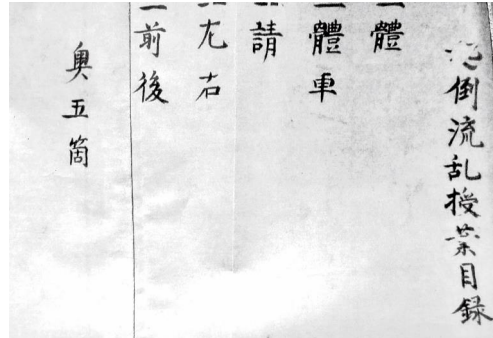 倒流乱授業目録
一體
一體車
請
左右
一前後
奥五箇